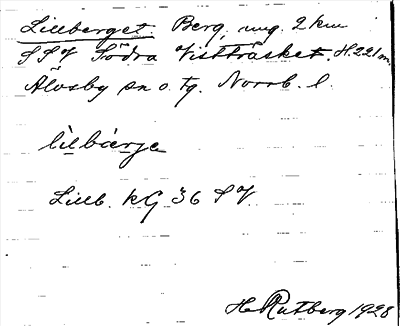 Lillberget. Berg, ung. 2 km
SSV Södra Vistträsket. H. 221 m.
Älvsby sn o. tg. Norrb. l.
lìlbàrje
Lillb. kG 36 SV
H. Rutberg 1928